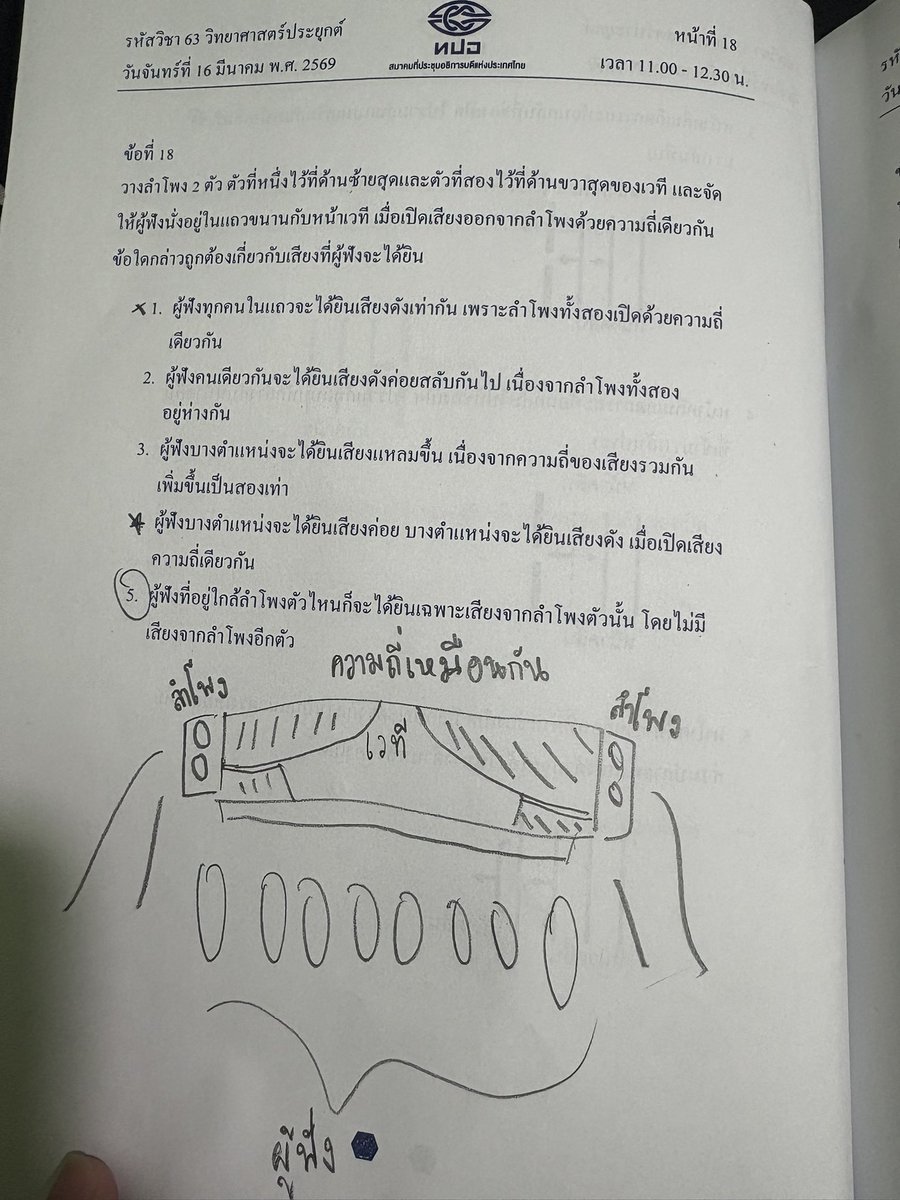 รหัสวิชา 63 วิทยาศาสตร์ประยุกต์
วันจันทร์ที่ 16 มีนาคม พ.ศ. 2569
ทปอ
สมาคมที่ประชุมอธิการบดีแห่งประเทศไทย
หน้าที่ 18
เวลา 11.00 - 12.30 น.
ข้อที่ 18
วางลำโพง 2 ตัว ตัวที่หนึ่งไว้ที่ด้านซ้ายสุดและตัวที่สองไว้ที่ด้านขวาสุดของเวที และจัด
ให้ผู้ฟังนั่งอยู่ในแถวขนานกับหน้าเวที เมื่อเปิดเสียงออกจากลำโพงด้วยความถี่เดียวกัน
ข้อใดกล่าวถูกต้องเกี่ยวกับเสียงที่ผู้ฟังจะได้ยิน
1. ผู้ฟังทุกคนในแถวจะได้ยินเสียงดังเท่ากัน เพราะลำโพงทั้งสองเปิดด้วยความถี่
เดียวกัน
2. ผู้ฟังคนเดียวกันจะได้ยินเสียงดังค่อยสลับกันไป เนื่องจากลำโพงทั้งสอง
อยู่ห่างกัน
3. ผู้ฟังบางตำแหน่งจะได้ยินเสียงแหลมขึ้น เนื่องจากความถี่ของเสียงรวมกัน
เพิ่มขึ้นเป็นสองเท่า
ผู้ฟังบางตำแหน่งจะได้ยินเสียงค่อย บางตำแหน่งจะได้ยินเสียงดัง เมื่อเปิดเสียง
ความถี่เดียวกัน
5. ผู้ฟังที่อยู่ใกล้ลำโพงตัวไหนก็จะได้ยินเฉพาะเสียงจากลำโพงตัวนั้น โดยไม่มี
เสียงจากลำโพงอีกตัว
ความถี่เหมือนกัน
ลำโพง
ลำโพง
เวที
ผู้ฟัง